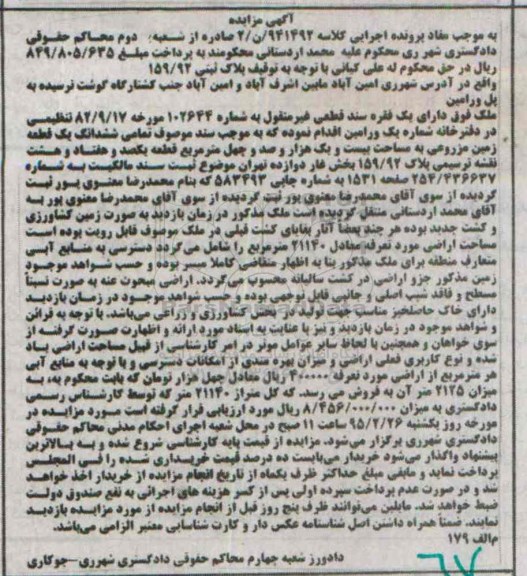 آگهی مزایده
به موجب مفاد پرونده اجرایی کلاسه ۹۴۱۴۹۲/ن/۲ صادره از شعبه؛ دوم محاکم حقوقی
دادگستری شهر ری محکوم علیه محمد اردستانی محکومند به پرداخت مبلغ ۸۴۹/۸۰۵/۶۳۵
ریال در حق محکوم له علی کیانی با توجه به توقیف پلاک ثبتی ۱۵۹/۹۲
واقع در آدرس شهرری امین آباد مابین اشرف آباد و امین آباد جنب کشتارگاه گوشت نرسیده به
پل ورامین
ملک فوق دارای یک فقره سند قطعی غیرمنقول به شماره ۱۰۲۶۴۴ مورخه ۸۲/۹/۱۷ تنظیمی
در دفترخانه شماره یک ورامین اقدام نموده که به موجب سند موصوف تمامی ششدانگ یک قطعه
زمین مزروعی به مساحت بیست و یک هزار و صد و چهل مترمربع قطعه یکصد و هفتاد و هشت
نقشه ترسیمی پلاک ۱۵۹/۹۲ بخش غار دوازده تهران موضوع ثبت سند مالکیت به شماره
۲۵۴/۴۳۶۶۳۷ صفحه ۱۵۳۱ به شماره چاپی ۵۸۳۴۹۳ که بنام محمدرضا معنوی پور ثبت
گردیده از سوی آقای محمدرضا معنوی پور ثبت گردیده از سوی آقای محمدرضا معنوی پور به
آقای محمد اردستانی منتقل گردیده است ملک مذکور در زمان بازدید به صورت زمین کشاورزی
و کشت جدید بوده هر چند بعضاً آثار بقایای کشت قبلی در ملک موصوف قابل رویت بوده است
مساحت اراضی مورد تعرفه معادل ۲۱۱۴۰ مترمربع را شامل می‌گردد دسترسی به منابع آبی
متعارف منطقه برای ملک مذکور بنا به اظهار متقاضی کاملا میسر بوده و حسب شواهد موجود
زمین مذکور جزو اراضی در کشت سالیانه محسوب می‌گردد. اراضی مبحوث عنه به صورت نسبتاً
مسطح و فاقد شیب اصلی و جانبی قابل توجهی بوده و حسب شواهد موجود در زمان بازدید
دارای خاک حاصلخیز مناسب جهت تولید در بخش کشاورزی و زراعی می‌باشد. با توجه به قرائن
و شواهد موجود در زمان بازدید و نیز با عنایت به اسناد مورد ارائه و اظهارت صورت گرفته از
سوی خواهان و همچنین با لحاظ سایر عوامل موثر در امر کارشناسی از قبیل مساحت اراضی یاد
شده و نوع کاربری فعلی اراضی و میزان بهره مندی از امکانات دسترسی و با توجه به منابع آبی
هر مترمربع از اراضی مورد تعرفه ۴۰۰۰۰۰ ریال معادل چهل هزار تومان که بابت محکوم به، به
میزان ۲۱۲۵ متر آن به فروش می رسد. که کل متراژ ۲۱۱۴۰ متر که توسط کارشناس رسمی
دادگستری به میزان ۸/۴۵۶/۰۰۰/۰۰۰ ریال مورد ارزیابی قرار گرفته است مورد مزایده در
مورخه روز یکشنبه ۹۵/۲/۲۶ ساعت ۱۱ صبح در محل شعبه اجرای احکام مدنی محاکم حقوقی
دادگستری شهرری برگزار می‌شود. مزایده از قیمت پایه کارشناسی شروع شده و به بالاترین
پیشنهاد واگذار می‌شود خریدار می‌بایست ده درصد قیمت خریداری شده را فی المجلس
پرداخت نماید و مابقی مبلغ حداکثر ظرف یکماه از تاریخ انجام مزایده از خریدار اخذ خواهد
شد و در صورت عدم پرداخت سپرده اولی پس از کسر هزینه های اجرائی به نفع صندوق دولت
ضبط خواهد شد. مایلین می‌توانند ظرف پنج روز قبل از انجام مزایده از مورد مزایده بازدید
نمایند. ضمناً همراه داشتن اصل شناسنامه عکس دار و کارت شناسایی معتبر الزامی می‌باشد.
م/الف ۱۷۹
دادورز شعبه چهارم محاکم حقوقی دادگستری شهرری-جوکاری
۶۷